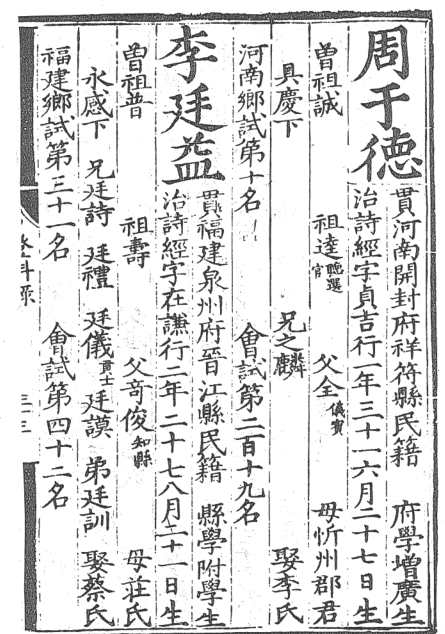 周于德
貫河南開封府祥符縣民籍 府學增廣生
治詩經字貞吉行一年三十一六月二十七日生
曾祖誠 祖達聽選官 父全儀賓 母忻州郡君
具慶下 兄之麟 娶李氏
河南鄉試第十名 會試第二百十九名
李廷益
貫福建泉州府晉江縣民籍 縣學附學生
治詩經字在謙行二年二十七八月二十一日生
曾祖普 祖壽 父奇俊知縣 母莊氏
永感下 兄廷詩 廷禮 廷儀貢士 廷謨 弟廷訓 娶蔡氏
福建鄉試第三十一名 會試第四十二名